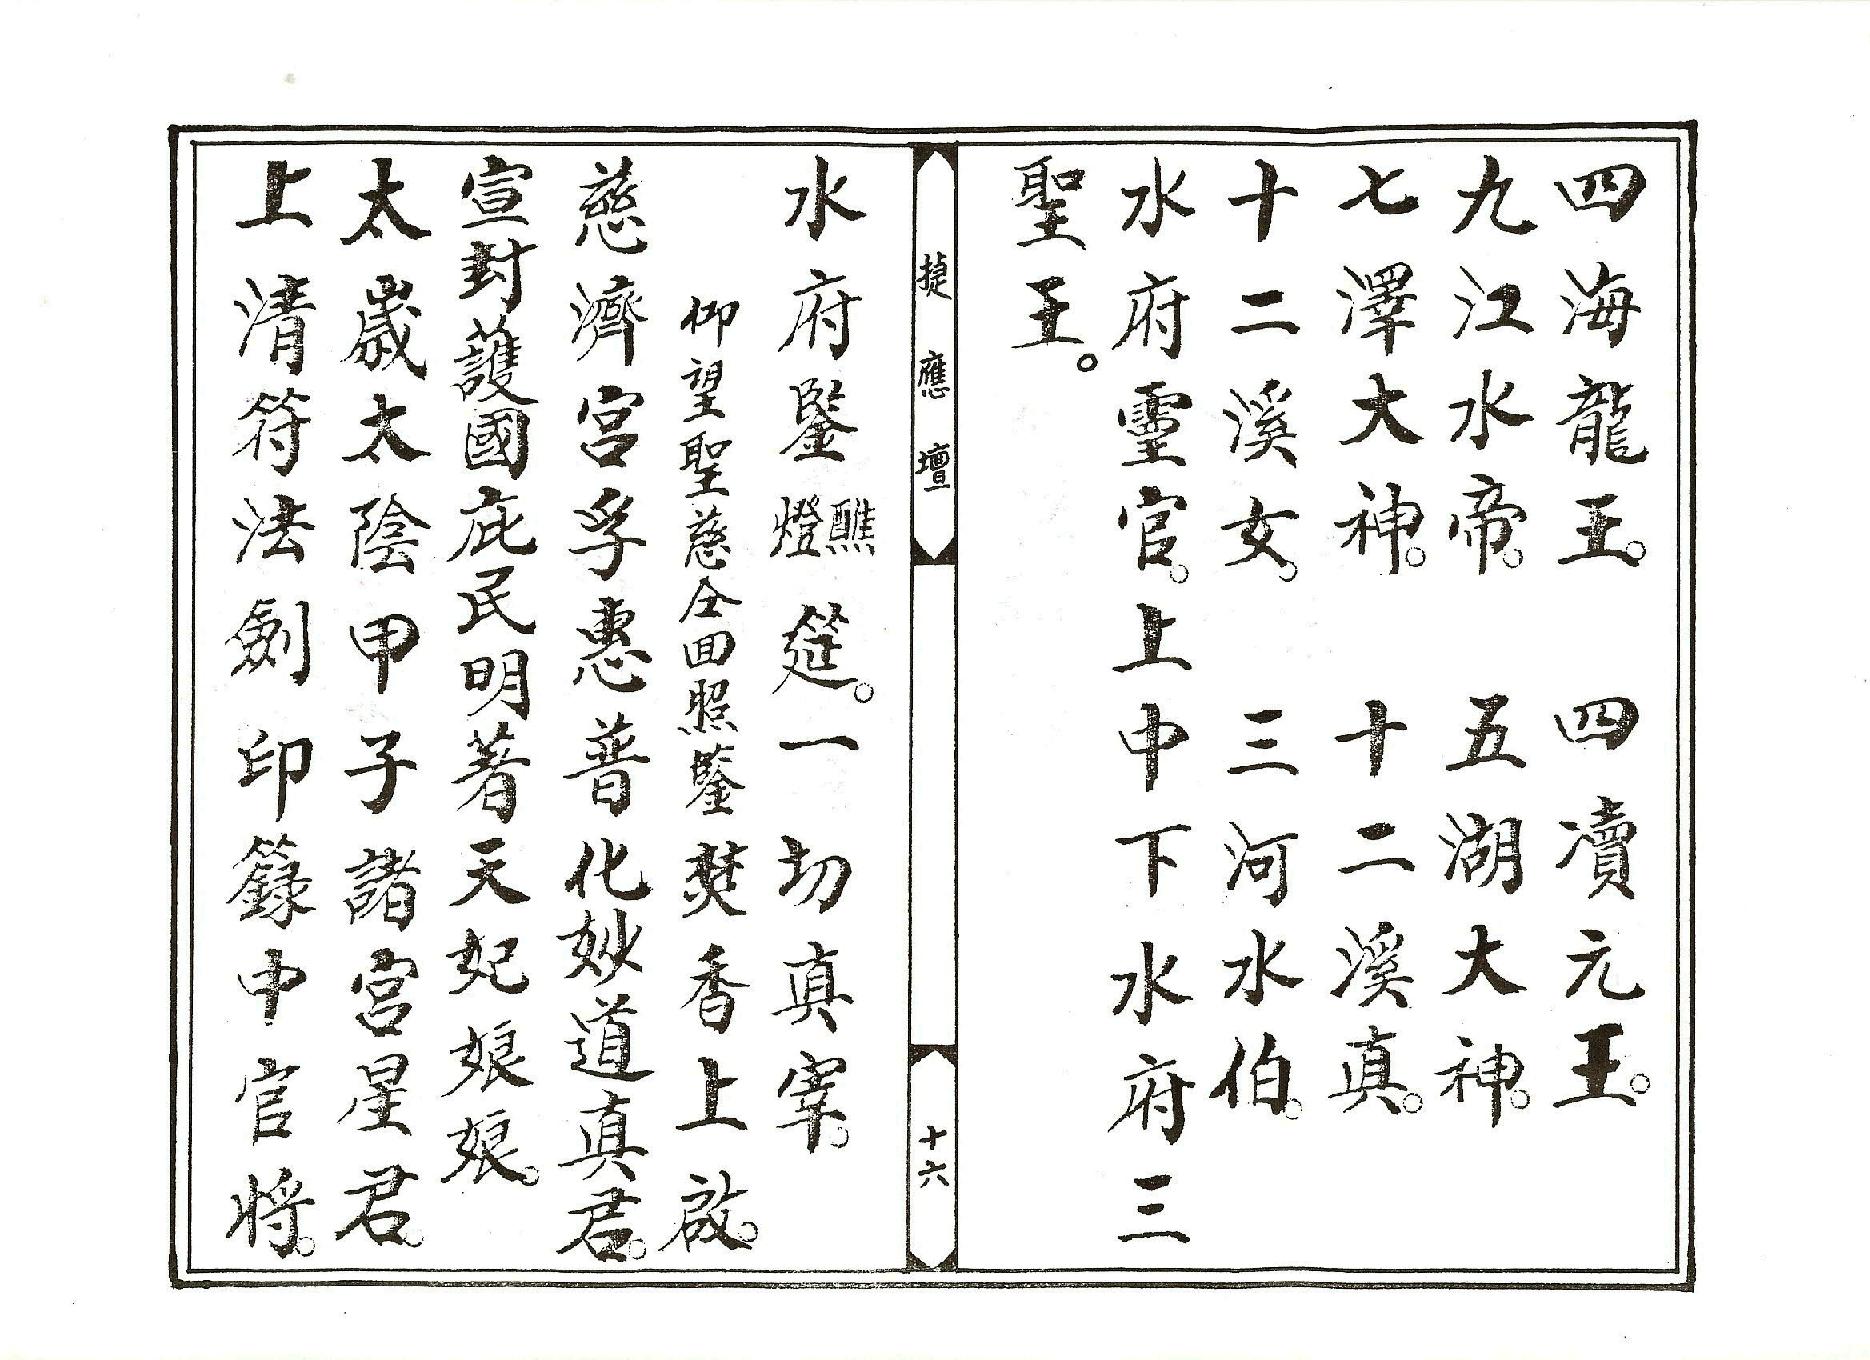 四海龍王。　四瀆元王。
九江水帝。　五湖大神。
七澤大神。　十二溪真。
十二溪女。　三河水伯。
水府靈官。上中下水府三
聖王。
捷應壇
十六
水府鑒醮燈筵。一切真宰。
仰望聖慈仝回照鑒焚香上啟。
慈濟宮孚惠普化妙道真君。
宣封護國庇民明著天妃娘娘。
太歲太陰甲子諸宮星君。
上清符法劍印籙中官将。